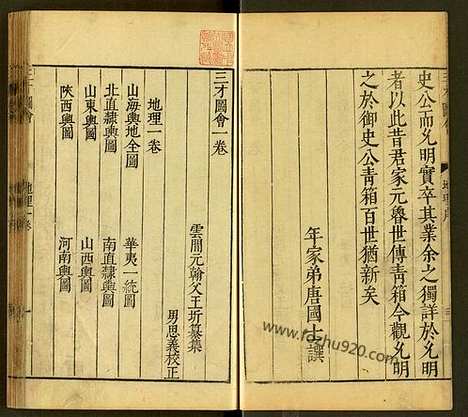 史公而允明實卒其業余之獨詳於允明
者以此昔君家元魯世傳青箱今觀允明
之於御史公青箱百世猶新矣
年家弟唐國士譔
三才圖會一卷
雲間元翰父王圻纂集
男思義校正
地理一卷
山海輿地全圖
華夷一統圖
北直隸輿圖
南直隸輿圖
山東輿圖
山西輿圖
陝西輿圖
河南輿圖
三才圖會
地理一卷
一